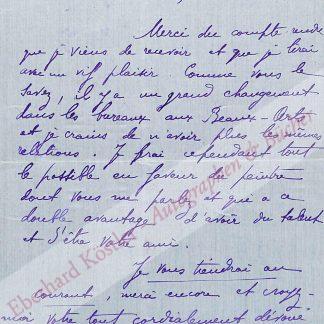 Merci du compte rendu
que je viens de recevoir et que je lirai
avec un vif plaisir. Comme vous le
savez, il y a un grand changement
dans les bureaux aux Beaux-Arts
et je crains de n'avoir plus les mêmes
relations. Je ferai cependant tout
le possible en faveur du peintre
dont vous me parlez et que a ce
double avantage d'avoir du talent
et d'être votre ami.
Je vous tiendrai au
courant, merci encore et croyez-
moi votre tout cordialement dévoué
Eberhard Köstler Autographen &